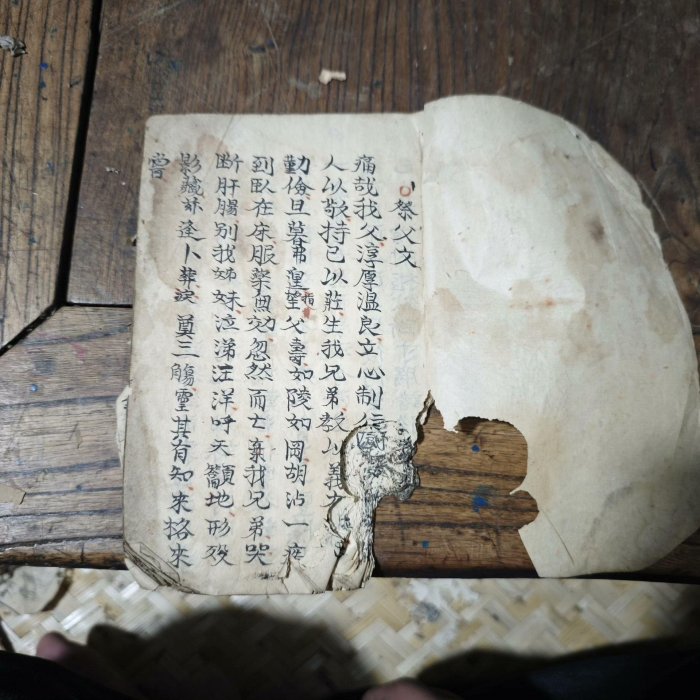 祭父文
痛哉我父淳厚温良立心制
人以敬持已以莊生我兄弟教以義
勤儉旦暮弗遑望指父壽如陵如岡胡沾一疾
到臥在床服藥無効忽然而亡棄我兄弟哭
断肝腸别我姊妹泣涕汪洋呼天籲地形殁
影藏逢卜葬淚奠三觴靈其有知來格來
嘗